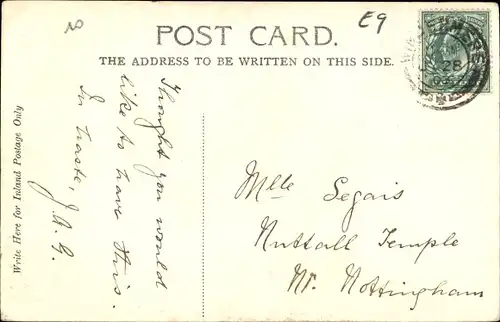 E9
POST CARD.
THE ADDRESS TO BE WRITTEN ON THIS SIDE.
Write Here for Inland Postage Only
Thought you would
like to have this.
In haste, J.A.G.
Mlle Segais
Nuttall Temple
Nr. Nottingham
28